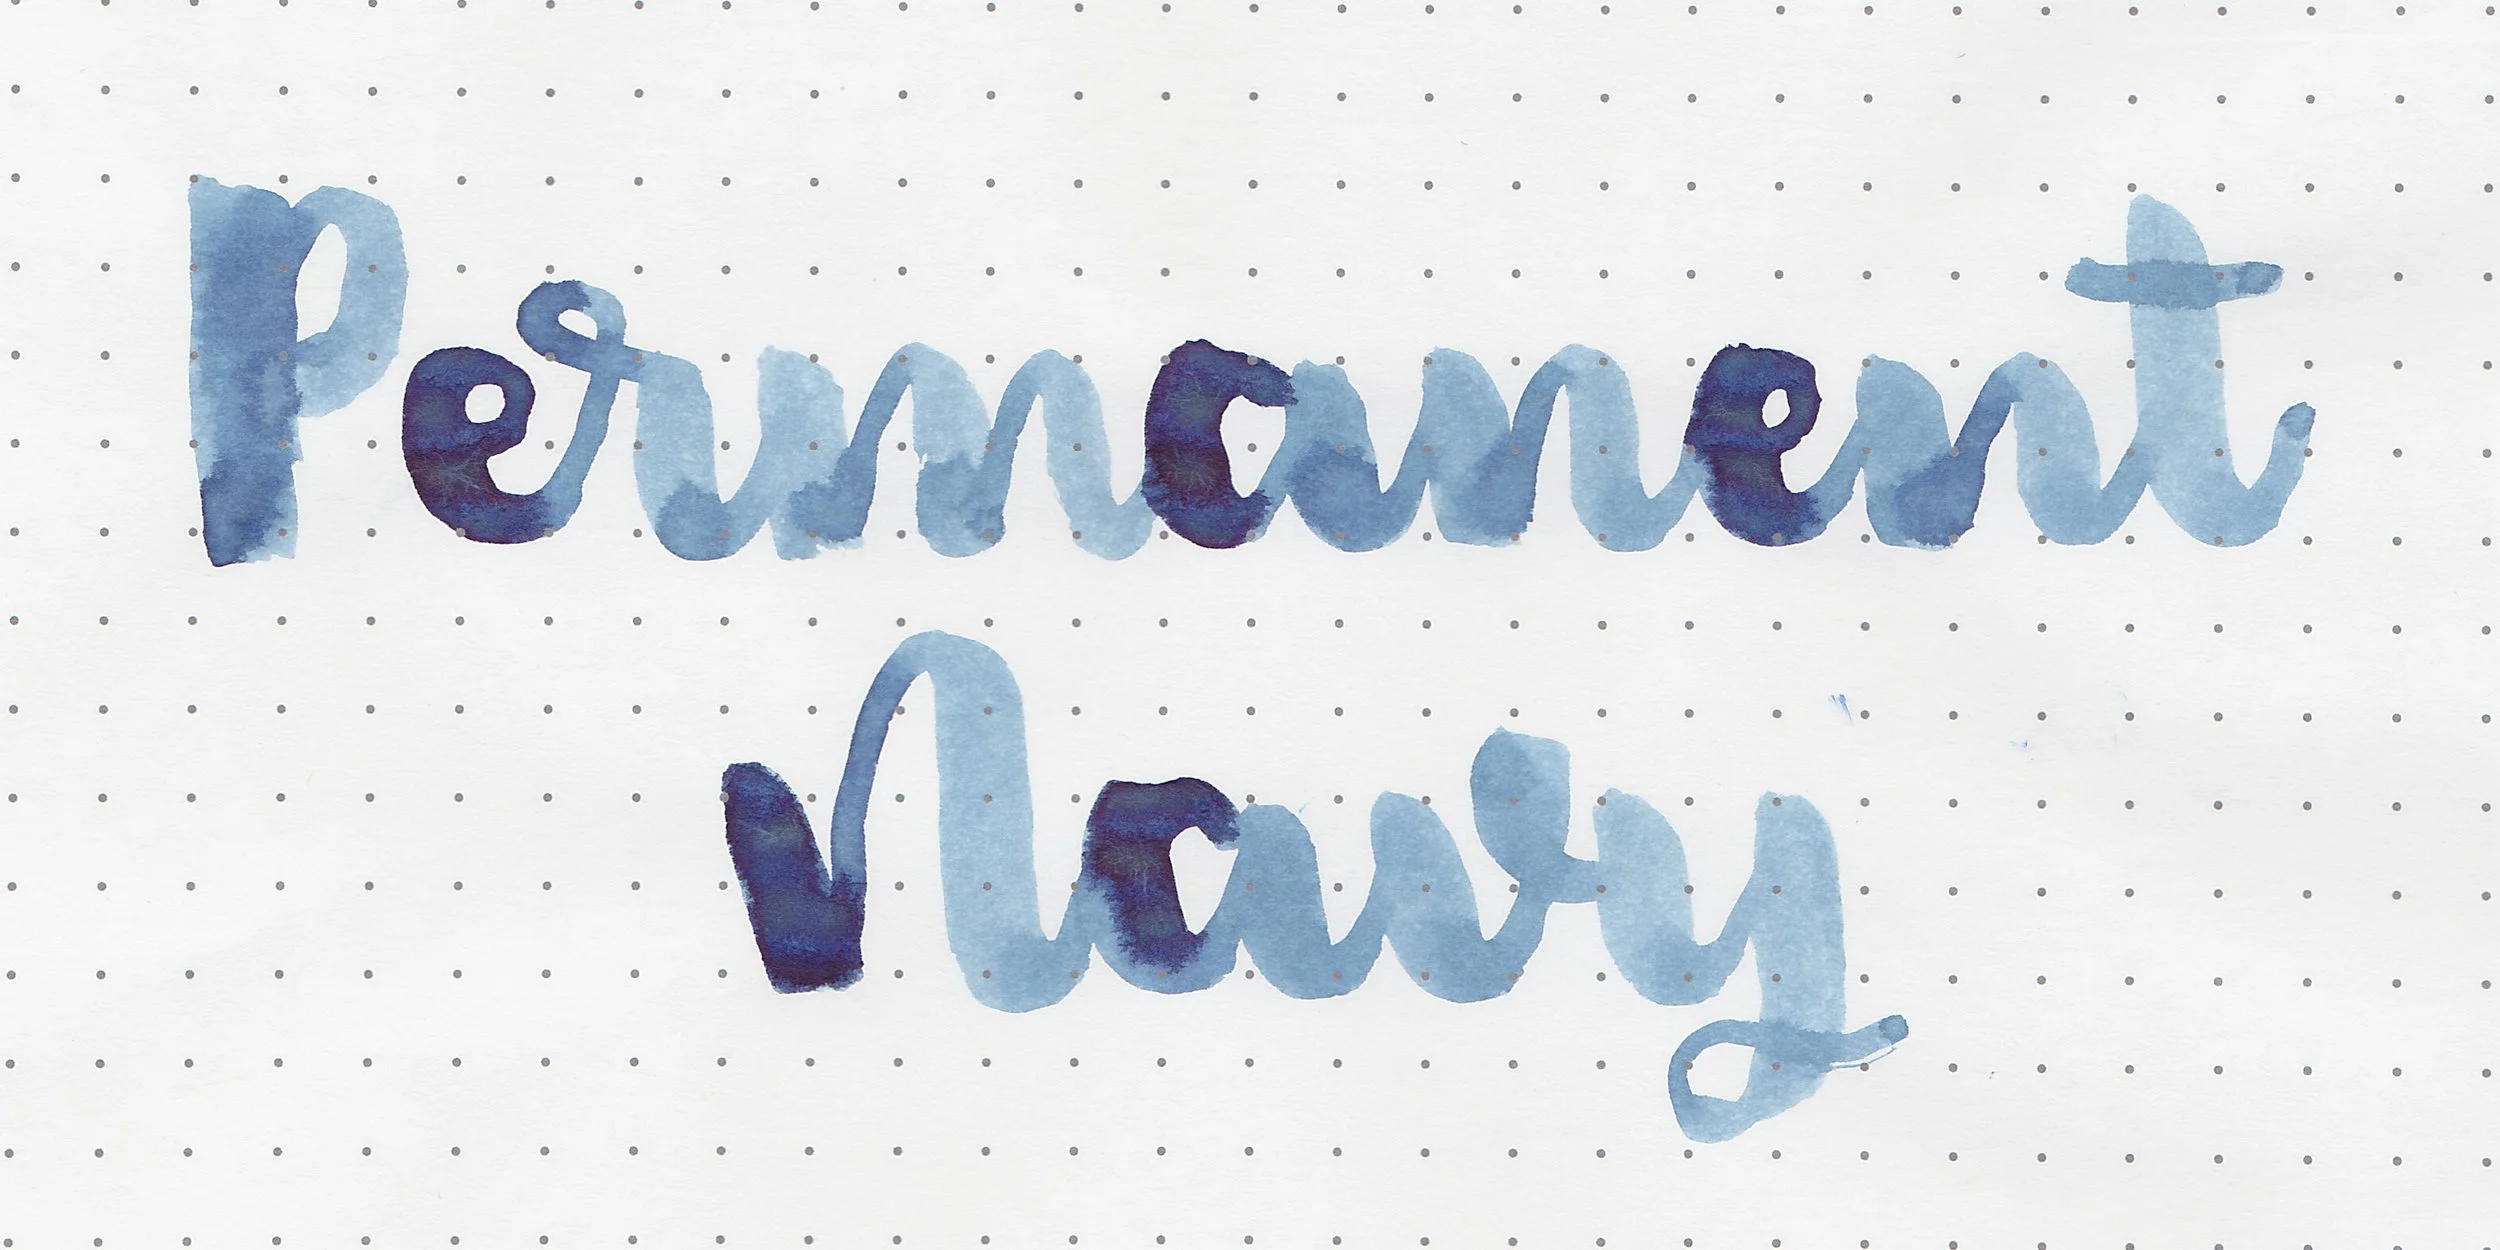 Permanent
Navy